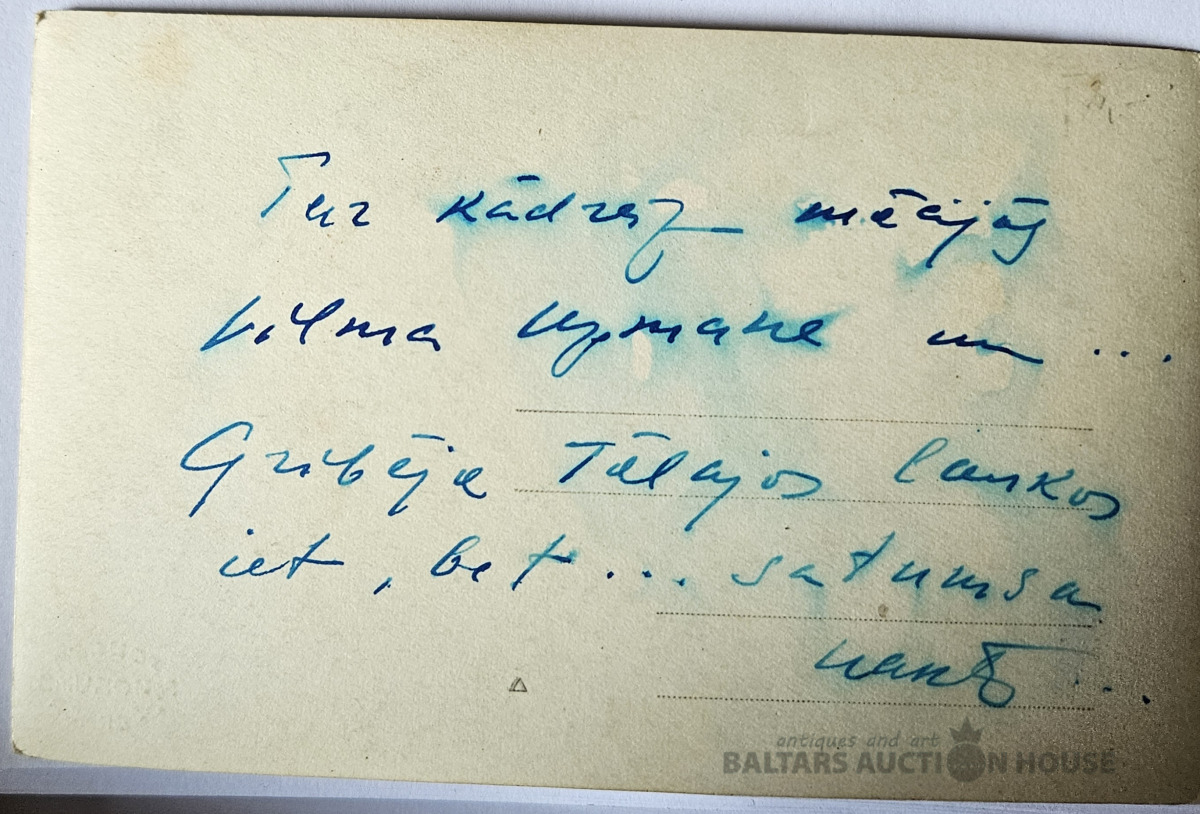 Tur kādreiz mācijās
Vilma Upmane un ...
Gribēja Tālajos laukos
iet, bet ... satumsa
nakts ...
antiques and art
BALTARS AUCTION HOUSE